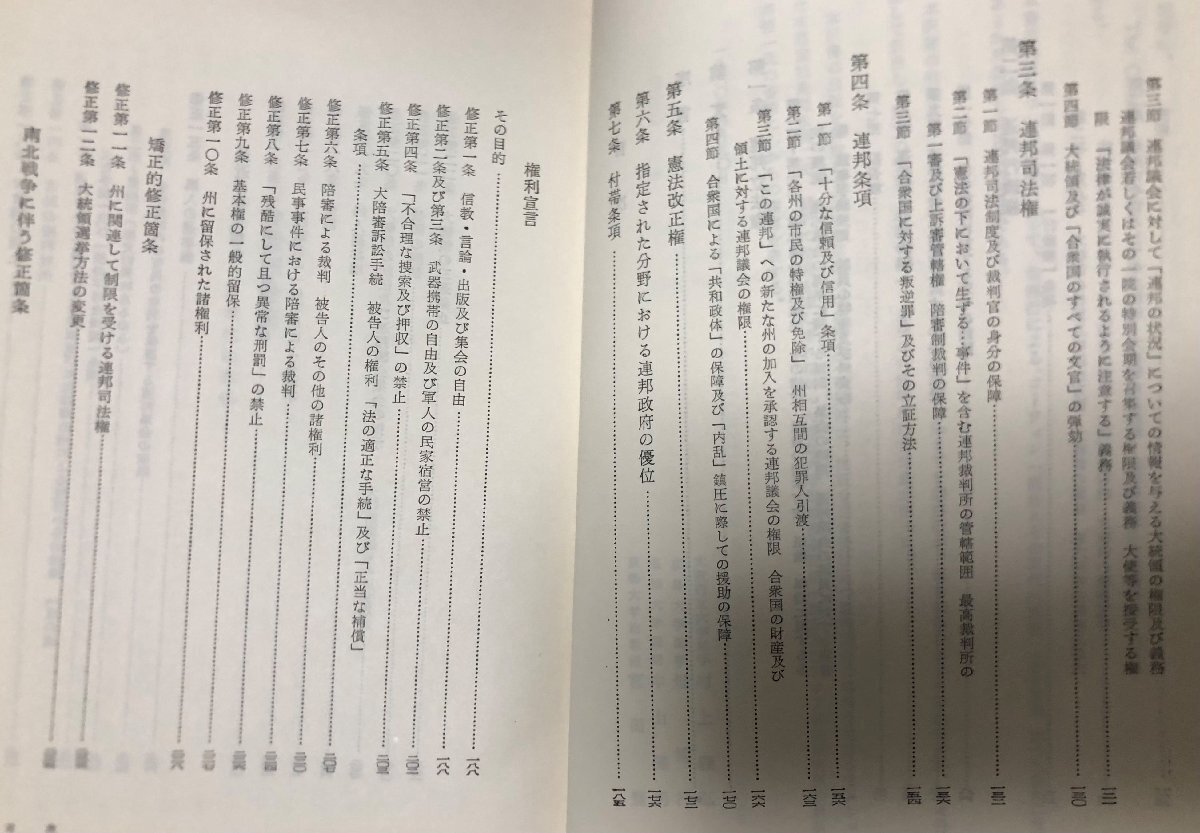 第三節 連邦議会に対して「連邦の状況」についての情報を与える大統領の権限及び義務
連邦議会若しくはその一院の特別会期を召集する権限及び義務 大使等を接受する権
限 「法律が誠実に執行されるように注意する」義務
第四節 大統領及び「合衆国のすべての文官」の弾劾
第三条 連邦司法権
第一節 連邦司法制度及び裁判官の身分の保障
第二節 「憲法の下において生ずる…事件」を含む連邦裁判所の管轄範囲 最高裁判所の
第一審及び上訴審管轄権 陪審制裁判の保障
第三節 「合衆国に対する叛逆罪」及びその立証方法
第四条 連邦条項
第一節 「十分な信頼及び信用」条項
第二節 「各州の市民の特権及び免除」 州相互間の犯罪人引渡
第三節 「この連邦」への新たな州の加入を承認する連邦議会の権限 合衆国の財産及び
領土に対する連邦議会の権限
第四節 合衆国による「共和政体」の保障及び「内乱」鎮圧に際しての援助の保障
第五条 憲法改正権
第六条 指定された分野における連邦政府の優位
第七条 付帯条項 一八五
権利宣言
その目的
修正第一条 信教・言論・出版及び集会の自由
修正第二条及び第三条 武器携帯の自由及び軍人の民家宿営の禁止
修正第四条 「不合理な捜索及び押収」の禁止
修正第五条 大陪審訴訟手続 被告人の権利 「法の適正な手続」及び「正当な補償」
条項
修正第六条 陪審による裁判 被告人のその他の諸権利
修正第七条 民事事件における陪審による裁判
修正第八条 「残酷にして且つ異常な刑罰」の禁止
修正第九条 基本権の一般的留保
修正第一〇条 州に留保された諸権利
矯正的修正箇条
修正第一一条 州に関連して制限を受ける連邦司法権
修正第一二条 大統領選挙方法の変更
南北戦争に伴う修正箇条